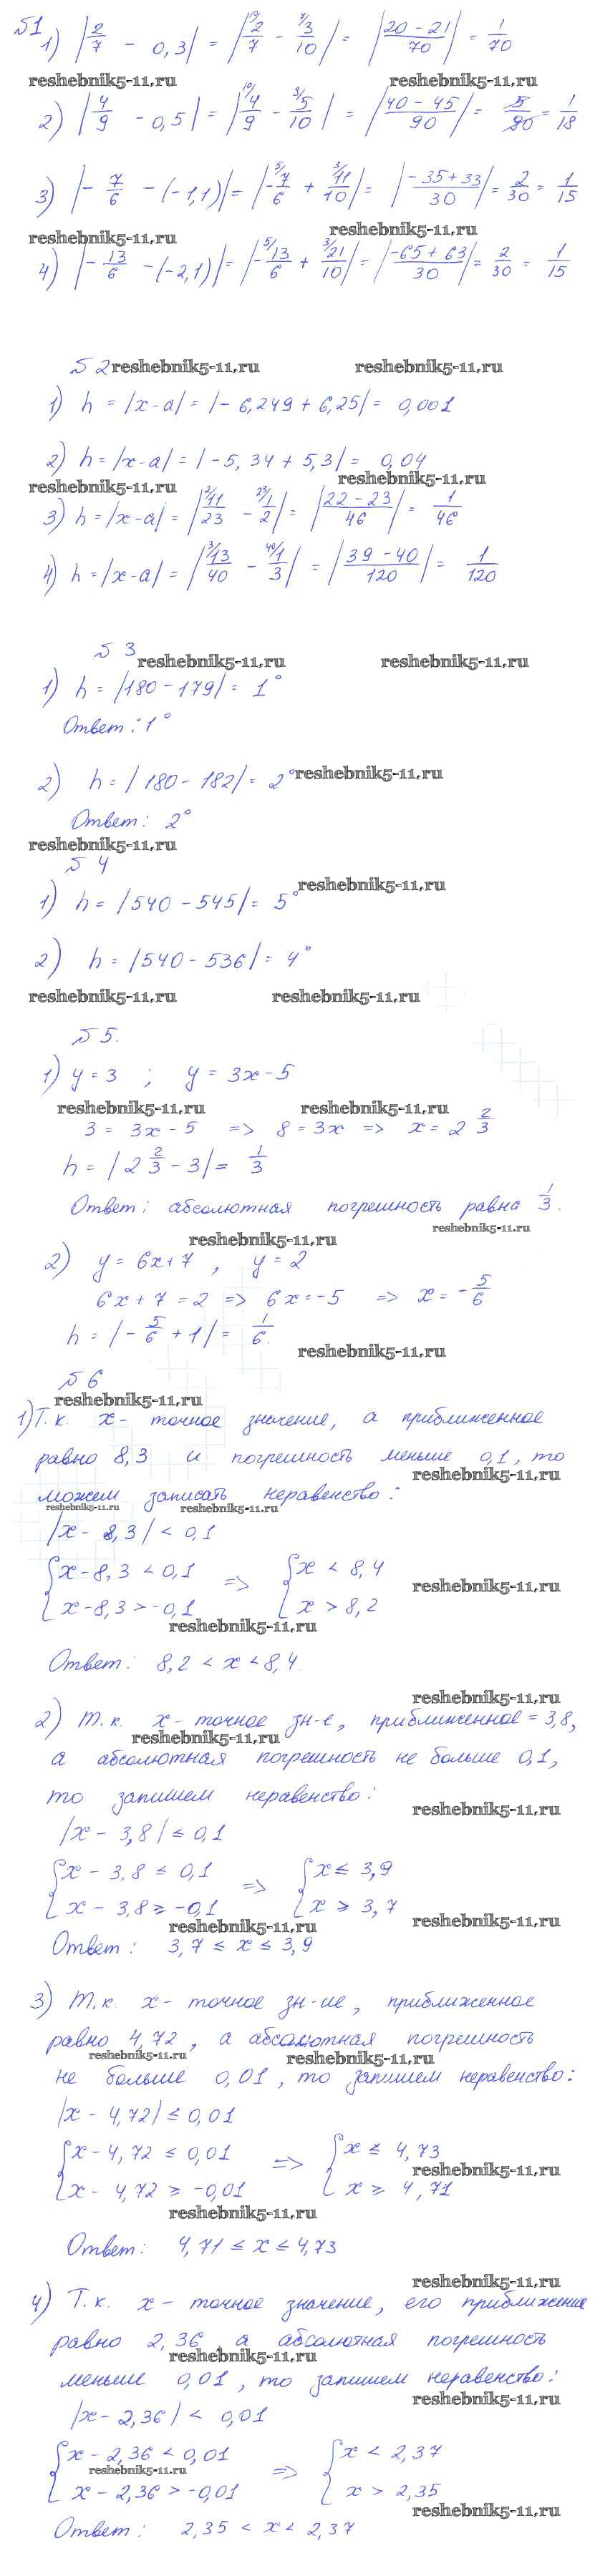 №1
1) |2/7 - 0,3| = |¹⁰⁄2/7 - ⁷⁄3/10| = |(20 - 21)/70| = 1/70
reshebnik5-11,ru reshebnik5-11,ru
2) |4/9 - 0,5| = |¹⁰⁄4/9 - ⁹⁄5/10| = |(40 - 45)/90| = 5/90 = 1/18
3) |- 7/6 - (-1,1)| = |-⁵⁄7/6 + ³⁄11/10| = |(-35 + 33)/30| = 2/30 = 1/15
reshebnik5-11,ru reshebnik5-11,ru
4) |- 13/6 - (-2,1)| = |-⁵⁄13/6 + ³⁄21/10| = |(-65 + 63)/30| = 2/30 = 1/15
№2 reshebnik5-11,ru reshebnik5-11,ru
1) h = |x-a| = |- 6,249 + 6,25| = 0,001
2) h = |x-a| = |-5,34 + 5,3| = 0,04
reshebnik5-11,ru reshebnik5-11,ru
3) h = |x-a| = |²⁄11/23 - ²³⁄1/2| = |(22 - 23)/46| = 1/46
4) h = |x-a| = |³⁄13/40 - ⁴⁰⁄1/3| = |(39 - 40)/120| = 1/120
№ 3
reshebnik5-11,ru reshebnik5-11,ru
1) h = |180 - 179| = 1°
Ответ: 1°
2) h = |180 - 182| = 2° reshebnik5-11,ru
Ответ: 2°
reshebnik5-11,ru
№ 4
reshebnik5-11,ru
1) h = |540 - 545| = 5°
2) h = |540 - 536| = 4°
reshebnik5-11,ru reshebnik5-11,ru
№ 5.
1) y = 3 ; y = 3x - 5
reshebnik5-11,ru reshebnik5-11,ru
3 = 3x - 5 => 8 = 3x => x = 2 2/3
h = |2 2/3 - 3| = 1/3
Ответ: абсолютная погрешность равна 1/3.
reshebnik5-11.ru
reshebnik5-11,ru
2) y = 6x + 7 , y = 2
6x + 7 = 2 => 6x = -5 => x = - 5/6
h = |- 5/6 + 1| = 1/6.
reshebnik5-11,ru
№ 6
reshebnik5-11,ru
1) Т.к. x - точное значение, а приближенное
равно 8,3 и погрешность меньше 0,1, то
reshebnik5-11,ru
можем записать неравенство:
reshebnik5-11.ru reshebnik5-11.ru
|x - 8,3| < 0,1
{x - 8,3 < 0,1 => {x < 8,4
reshebnik5-11,ru
x - 8,3 > -0,1 x > 8,2
reshebnik5-11,ru
Ответ: 8,2 < x < 8,4.
reshebnik5-11,ru
2) т.к. x - точное зн-е, приближенное = 3,8,
reshebnik5-11,ru
а абсолютная погрешность не больше 0,1,
то запишем неравенство:
reshebnik5-11,ru
|x - 3,8| ≤ 0,1
{x - 3,8 ≤ 0,1 => {x ≤ 3,9
x - 3,8 ≥ -0,1 x ≥ 3,7
reshebnik5-11,ru reshebnik5-11,ru
Ответ: 3,7 ≤ x ≤ 3,9
3) т.к. x - точное зн-ие, приближенное
равно 4,72, а абсолютная погрешность
reshebnik5-11.ru reshebnik5-11,ru
не больше 0,01, то запишем неравенство:
|x - 4,72| ≤ 0,01
{x - 4,72 ≤ 0,01 => {x ≤ 4,73
reshebnik5-11,ru
x - 4,72 ≥ -0,01 x ≥ 4,71
reshebnik5-11,ru
Ответ: 4,71 ≤ x ≤ 4,73
reshebnik5-11,ru
4) Т.к. x - точное значение, его приближение
равно 2,36, а абсолютная погрешность
reshebnik5-11,ru
меньше 0,01, то запишем неравенство:
reshebnik5-11,ru
|x - 2,36| < 0,01
{x - 2,36 < 0,01 => {x < 2,37
reshebnik5-11.ru
x - 2,36 > -0,01 x > 2,35
reshebnik5-11,ru
Ответ: 2,35 < x < 2,37